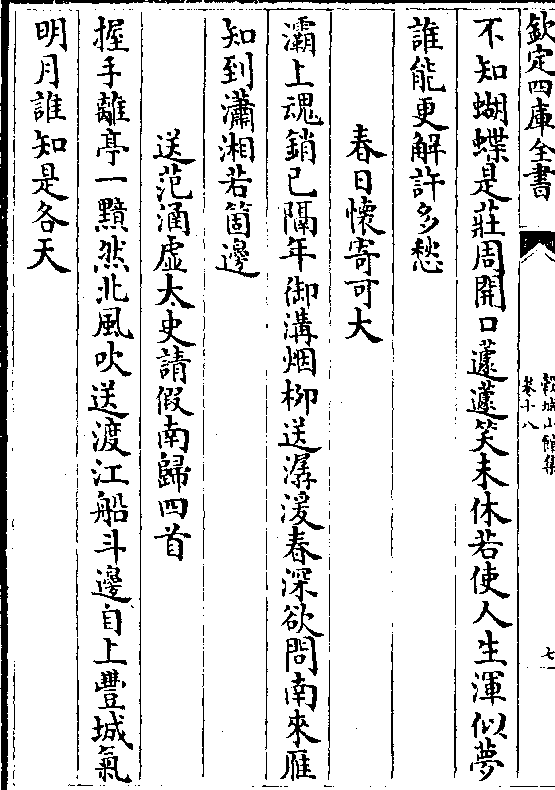 欽定四庫全書
穀城山館集
卷十八
七
不知蝴蝶是莊周開口蘧蘧笑未休若使人生渾似夢
誰能更解許多愁
春日懷寄可大
灞上魂銷已隔年御溝烟柳送潺湲春深欲問南來雁
知到瀟湘若箇邊
送范涵虛太史請假南歸四首
握手離亭一黯然北風吹送渡江船斗邊自上豐城氣
明月誰知是各天